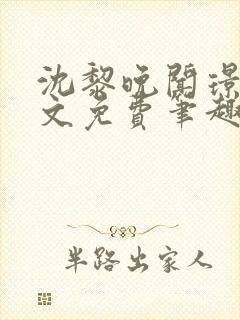 沈黎晚关璟
文免费笔趣
半路出家人